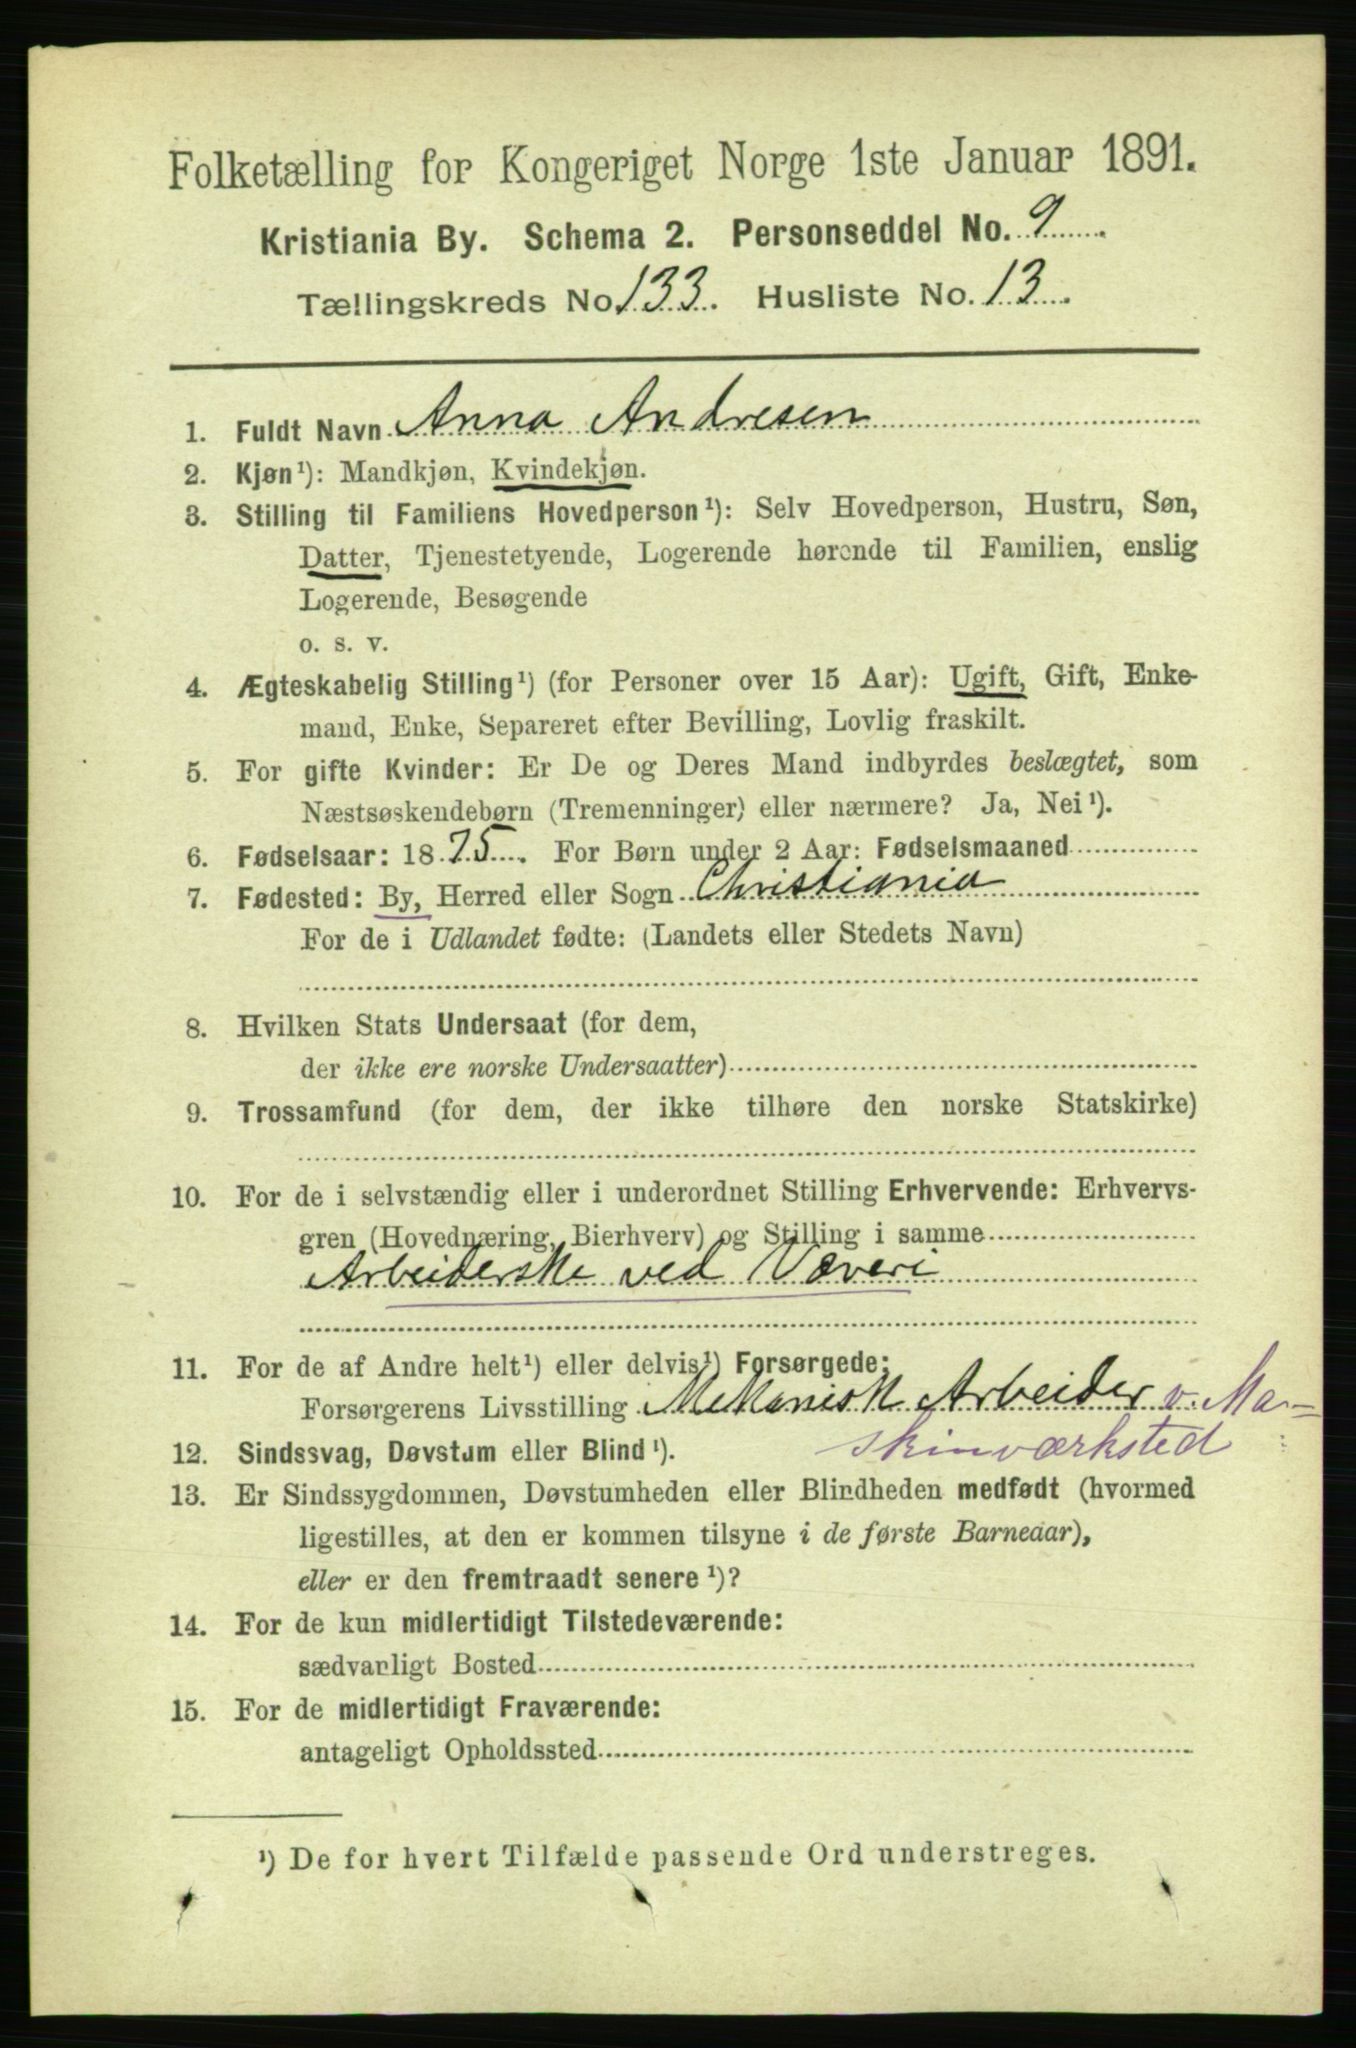 Folketælling for Kongeriget Norge 1ste Januar 1891.
Kristiania By. Schema 2. Personseddel No. 9
Tællingskreds No. 133. Husliste No. 13.
1. Fuldt Navn Anna Andresen
2. Kjøn¹): Mandkjøn, Kvindekjøn.
3. Stilling til Familiens Hovedperson¹): Selv Hovedperson, Hustru, Søn,
Datter, Tjenestetyende, Logerende hørende til Familien, enslig
Logerende, Besøgende
o. s. v.
4. Ægteskabelig Stilling¹) (for Personer over 15 Aar): Ugift, Gift, Enke-
mand, Enke, Separeret efter Bevilling, Lovlig fraskilt.
5. For gifte Kvinder: Er De og Deres Mand indbyrdes beslægtet, som
Næstsøskendebørn (Tremenninger) eller nærmere? Ja, Nei¹).
6. Fødselsaar: 1875. For Børn under 2 Aar: Fødselsmaaned
7. Fødested: By, Herred eller Sogn Christiania
For de i Udlandet fødte: (Landets eller Stedets Navn)
8. Hvilken Stats Undersaat (for dem,
der ikke ere norske Undersaatter)
9. Trossamfund (for dem, der ikke tilhøre den norske Statskirke)
10. For de i selvstændig eller i underordnet Stilling Erhvervende: Erhvervs-
gren (Hovednæring, Bierhverv) og Stilling i samme
Arbeiderske ved Væveri
11. For de af Andre helt¹) eller delvis¹) Forsørgede:
Forsørgerens Livsstilling Mekanisk Arbeider v. Ma-
skinværksted
12. Sindssvag, Døvstum eller Blind¹).
13. Er Sindssygdommen, Døvstumheden eller Blindheden medfødt (hvormed
ligestilles, at den er kommen tilsyne i de første Barneaar),
eller er den fremtraadt senere¹)?
14. For de kun midlertidigt Tilstedeværende:
sædvanligt Bosted
15. For de midlertidigt Fraværende:
antageligt Opholdssted
¹) De for hvert Tilfælde passende Ord understreges.